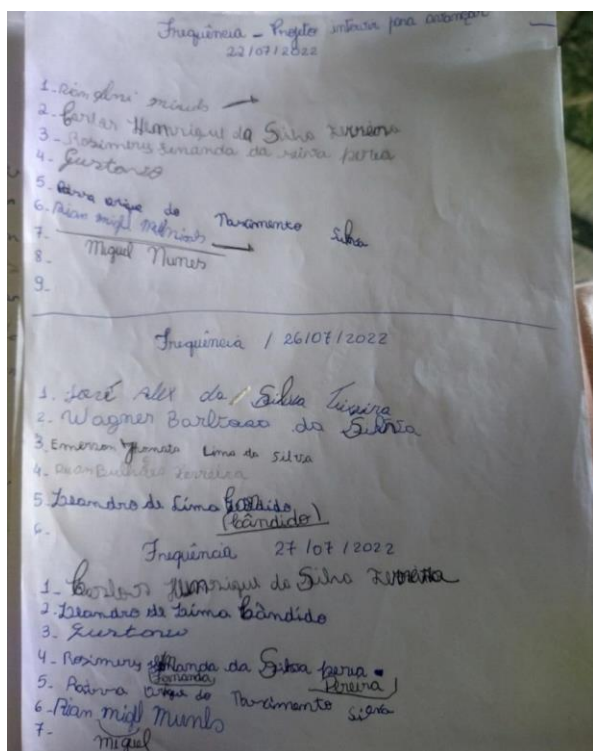 Frequência - Projeto intervir para avançar
22/07/2022
1-Rian
2- Carlos Henrique da Silva Ferreira
3-Rosimeris Fernanda da perea
4- Gustavo
5- do Narcimento Silva
6-Rian migl
7- Miguel Nunes
8-
9-
Frequência / 26/07/2022
1. José Alex da Silva Teixeira
2. Wagner Barbosa da Silva
3 Emerson Lima da Silva
4- Ferreira
5. Leandro de Lima Candido
(Cândido)
6-
Frequência 27/07/2022
1- Carlos Henrique da Silva Ferreira
2. Leandro de Lima Cândido
3- Gustavo
4- Rosimeris da Silva perea
(Fernanda) (Pereira)
5- do Narcimento Silva
6-Rian migl Munls
7- miguel